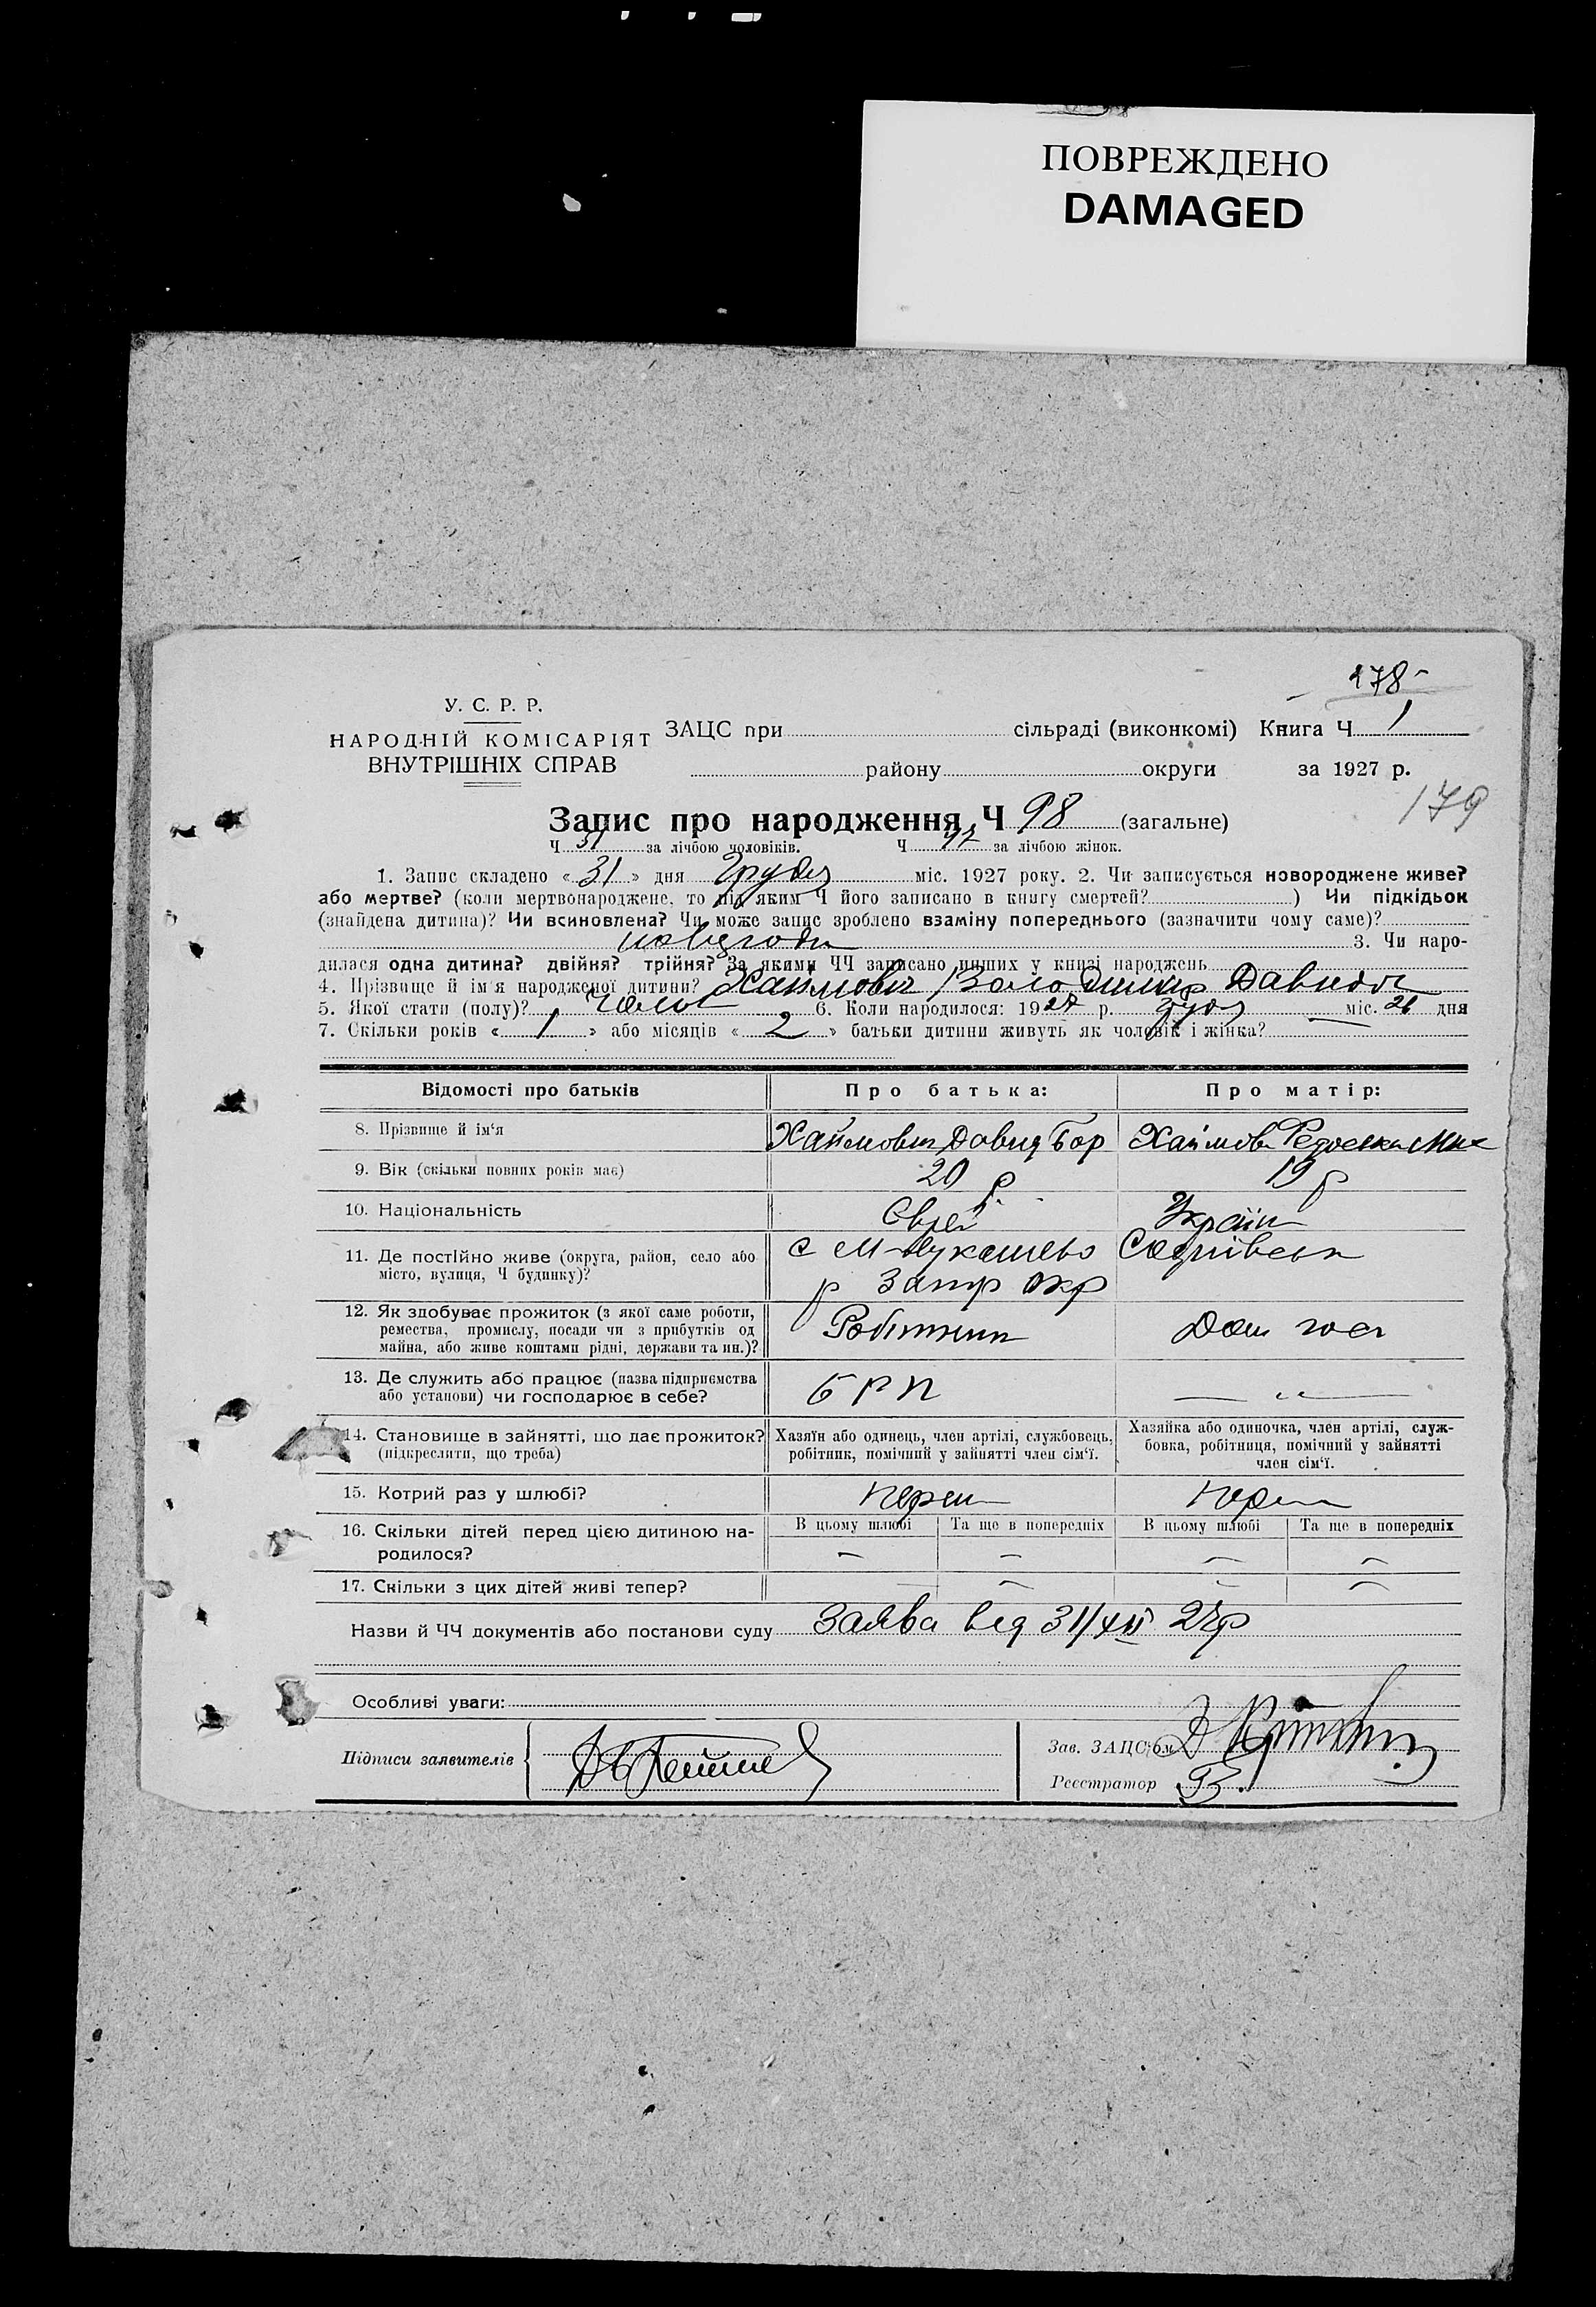 ПОВРЕЖДЕНО
DAMAGED
178
У. С. Р. Р.
НАРОДНІЙ КОМІСАРІЯТ
ВНУТРІШНІХ СПРАВ
ЗАЦС при сільраді (виконкомі) Книга Ч 1
району округи за 1927 р.
179
Запис про народження Ч 98 (загальне)
Ч 51 за лічбою чоловіків. Ч 47 за лічбою жінок.
1. Запис складено « 31 » дня Грудня міс. 1927 року. 2. Чи записується новороджене живе?
або мертве? (коли мертвонароджене, то під яким Ч його записано в книгу смертей? ) Чи підкідьок
(знайдена дитина)? Чи всиновлена? Чи може запис зроблено взаміну попереднього (зазначити чому саме)?
3. Чи наро-
дилася одна дитина? двійня? трійня? За якими ЧЧ записано инших у книзі народжень
4. Прізвище й ім'я народженої дитини? Хаймович Володимир Давидов
5. Якої стати (полу)? Чолов 6. Коли народилося: 1927 р. Грудня міс. 26 дня
7. Скільки років « 1 » або місяців « 2 » батьки дитини живуть як чоловік і жінка? —
Відомості про батьків Про батька: Про матір:
8. Прізвище й ім'я Хаймович Давид Бор Хаймов Федоска Мих
9. Вік (скільки повних років має) 20 р 19 р
10. Національність Єврей Україн
11. Де постійно живе (округа, район, село або
місто, вулиця, Ч будинку)?
с М-Лукашево Софіївськ
р Запор окр
12. Як здобуває прожиток (з якої саме роботи,
ремества, промислу, посади чи з прибутків од
майна, або живе коштами рідні, держави та ин.)?
Робітник Дом госп
13. Де служить або працює (назва підприємства
або установи) чи господарює в себе?
БРП — „ —
14. Становище в зайнятті, що дає прожиток?
(підкреслити, що треба)
Хазяїн або одинець, член артілі, службовець,
робітник, помічний у зайнятті член сім'ї.
Хазяйка або одиночка, член артілі, служ-
бовка, робітниця, помічний у зайнятті
член сім'ї.
15. Котрий раз у шлюбі? Перши Перш
16. Скільки дітей перед цією дитиною на-
родилося?
В цьому шлюбі Та ще в попередніх В цьому шлюбі Та ще в попередніх
— — — —
17. Скільки з цих дітей живі тепер? — — — —
Назви й ЧЧ документів або постанови суду Заява від 31/XII 27р
Особливі уваги:
Підписи заявителів
Зав. ЗАЦС'ом
Реєстратор